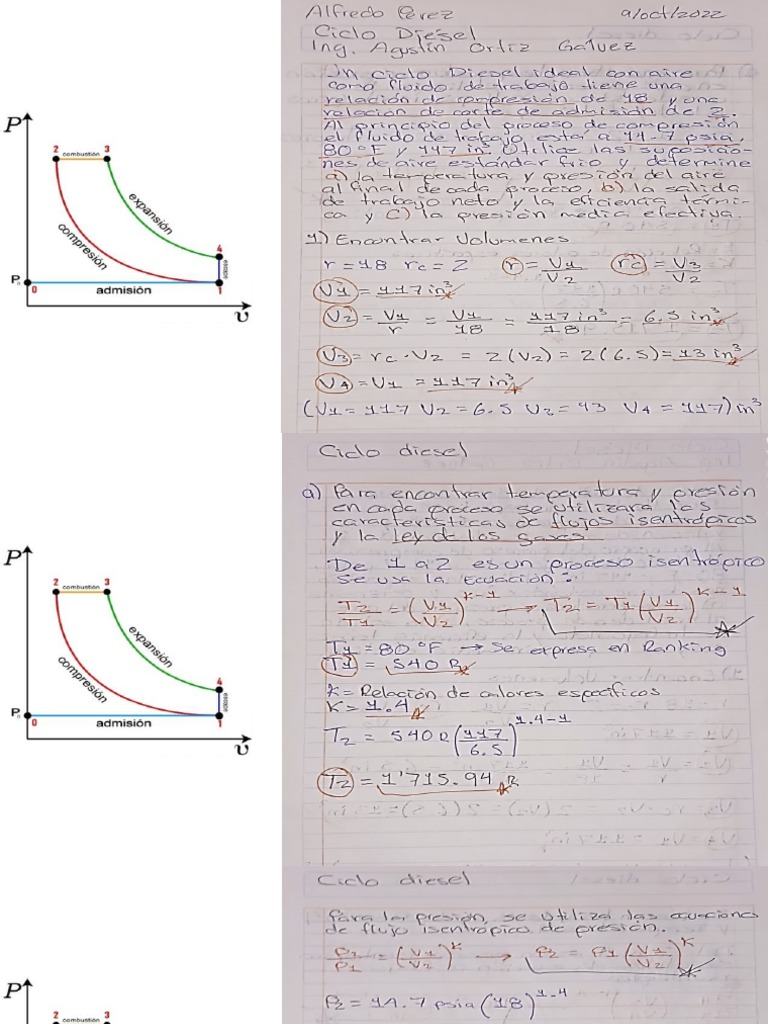 Alfredo Perez 9/oct/2022
Ciclo Diesel
Ing. Agustín Ortiz Galvez
Un ciclo Diesel ideal con aire
como fluido de trabajo tiene una
relación de compresión de 18 y una
relación de corte de admisión de 2.
Al principio del proceso de compresión
el fluido de trabajo esta a 14.7 psia,
80 °F y 117 in³ Utilice las suposicio-
nes de aire estándar frio y determine
a) la temperatura y presión del aire
al final de cada proceso, b) la salida
de trabajo neto y la eficiencia térmi-
ca y c) la presión media efectiva.
1) Encontrar Volumenes
r = 18 rc = 2 r = V1/V2 rc = V3/V2
V1 = 117 in³
V2 = V1/r = V1/18 = 117 in³/18 = 6.5 in³
V3 = rc · V2 = 2(V2) = 2(6.5) = 13 in³
V4 = V1 = 117 in³
(V1 = 117 V2 = 6.5 V3 = 13 V4 = 117) in³
P
2 combustión 3
compresión
expansión
4
escape
P₀
0
admisión
1
υ
Ciclo diesel
a) Para encontrar temperatura y presión
en cada proceso se utilizara las
características de flujos isentrópicos
y la ley de los gases
De 1 a 2 es un proceso isentrópico
Se usa la ecuación:
T2/T1 = (V1/V2)^k-1 → T2 = T1(V1/V2)^k-1
T1 = 80 °F → Se expresa en Ranking
T1 = 540 R
k = Relación de calores específicos
k = 1.4
T2 = 540 R(117/6.5)^1.4-1
T2 = 1'715.94 R
P
2 combustión 3
compresión
expansión
4
escape
P₀
0
admisión
1
υ
Ciclo diesel
Para la presión, se utiliza las ecuaciones
de flujo isentrópico de presión.
P2/P1 = (V1/V2)^k → P2 = P1(V1/V2)^k
P2 = 14.7 psia(18)^1.4
P
2 combustión 3